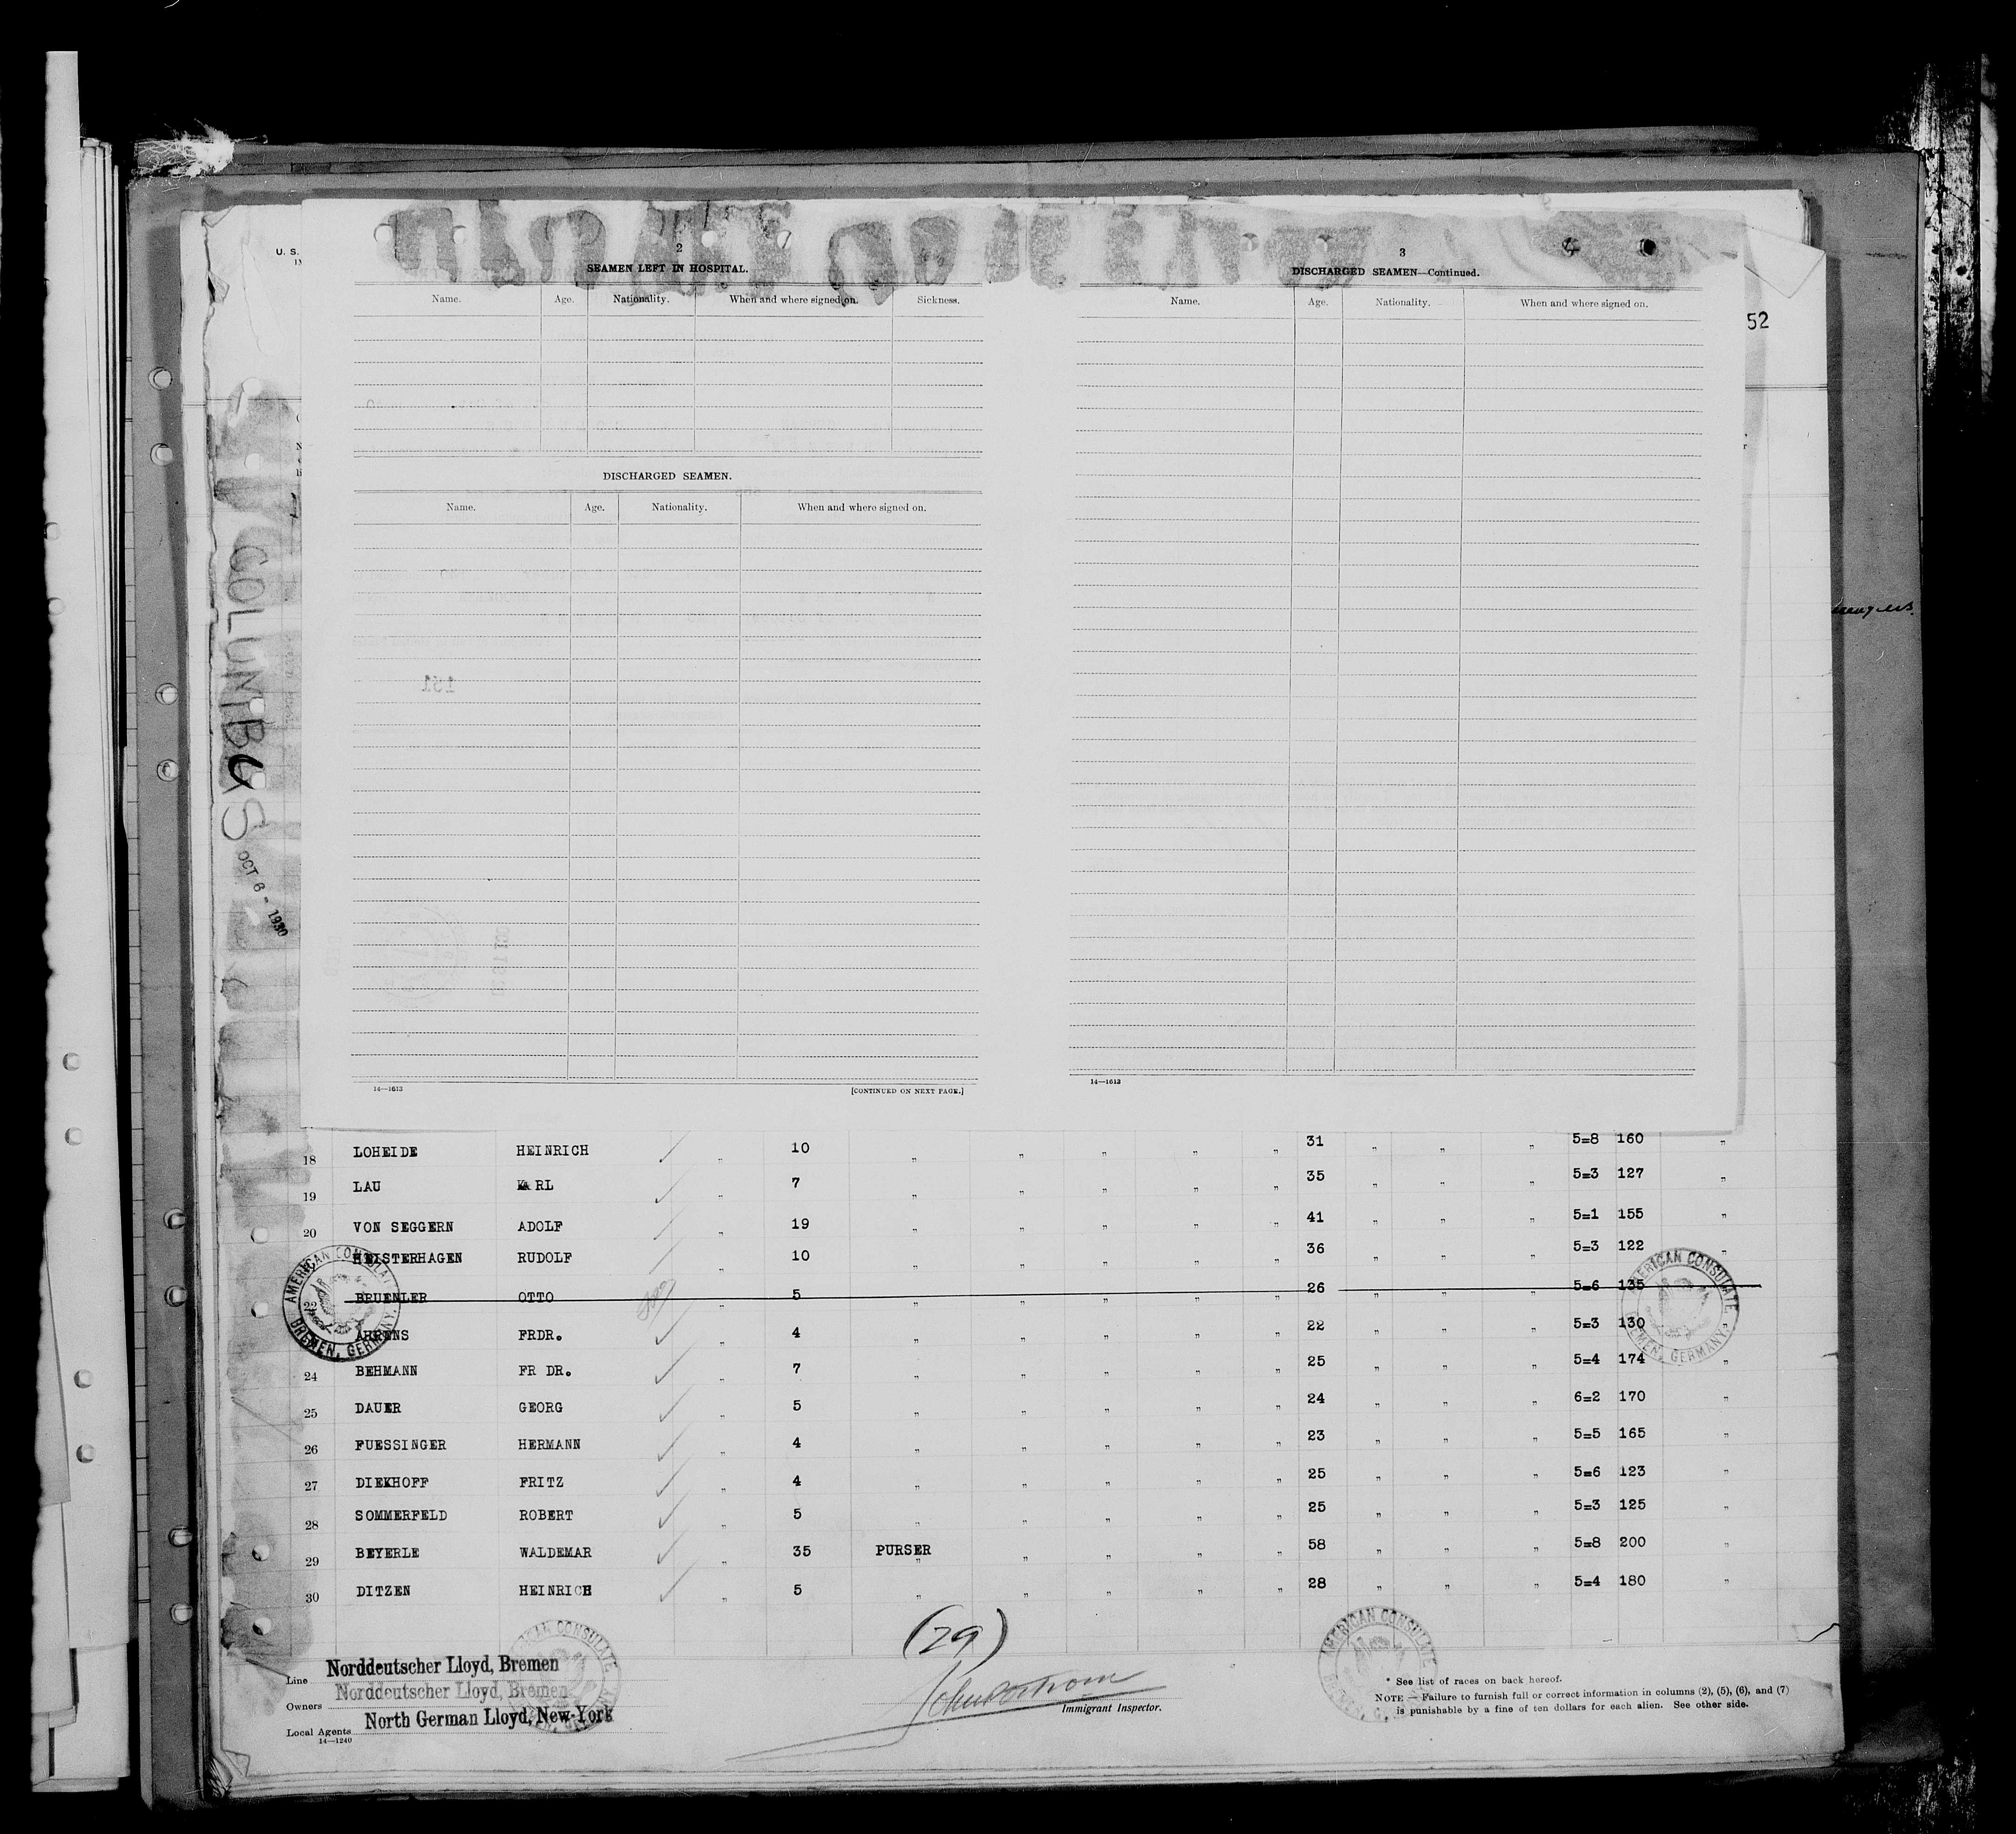 U. S.
52
2
SEAMEN LEFT IN HOSPITAL.
Name. Age. Nationality. When and where signed on. Sickness.
DISCHARGED SEAMEN.
Name. Age. Nationality. When and where signed on.
14—1613 [CONTINUED ON NEXT PAGE.]
3
DISCHARGED SEAMEN—Continued.
Name. Age. Nationality. When and where signed on.
14—1613
COLUMBUS
OCT 6 - 1930
18 LOHEIDE HEINRICH ✓ " 10 " " " " " 31 " " " 5=8 160 "
19 LAU KARL ✓ " 7 " " " " " 35 " " " 5=3 127 "
20 VON SEGGERN ADOLF ✓ " 19 " " " " " 41 " " " 5=1 155 "
HEISTERHAGEN RUDOLF ✓ " 10 " " " " " 36 " " " 5=3 122 "
22 BRUENLER OTTO " 5 " " " " " 26 " " " 5=6 135
AHRENS FRDR. ✓ " 4 " " " " " 22 " " " 5=3 130
24 BEHMANN FR DR. ✓ " 7 " " " " " 25 " " " 5=4 174 "
25 DAUER GEORG ✓ " 5 " " " " " 24 " " " 6=2 170 "
26 FUESSINGER HERMANN ✓ " 4 " " " " " 23 " " " 5=5 165 "
27 DIEKHOFF FRITZ ✓ " 4 " " " " " 25 " " " 5=6 123 "
28 SOMMERFELD ROBERT ✓ " 5 " " " " " 25 " " " 5=3 125 "
29 BEYERLE WALDEMAR ✓ " 35 PURSER " " " " " 58 " " " 5=8 200 "
30 DITZEN HEINRICH ✓ " 5 " " " " " 28 " " " 5=4 180 "
AMERICAN CONSULATE
BREMEN, GERMANY.
AMERICAN CONSULATE
BREMEN, GERMANY.
AMERICAN CONSULATE
AMERICAN CONSULATE
(29)
Immigrant Inspector.
Line Norddeutscher Lloyd, Bremen
Owners Norddeutscher Lloyd, Bremen
Local Agents North German Lloyd, New-York
14—1240
* See list of races on back hereof.
NOTE — Failure to furnish full or correct information in columns (2), (5), (6), and (7)
is punishable by a fine of ten dollars for each alien. See other side.